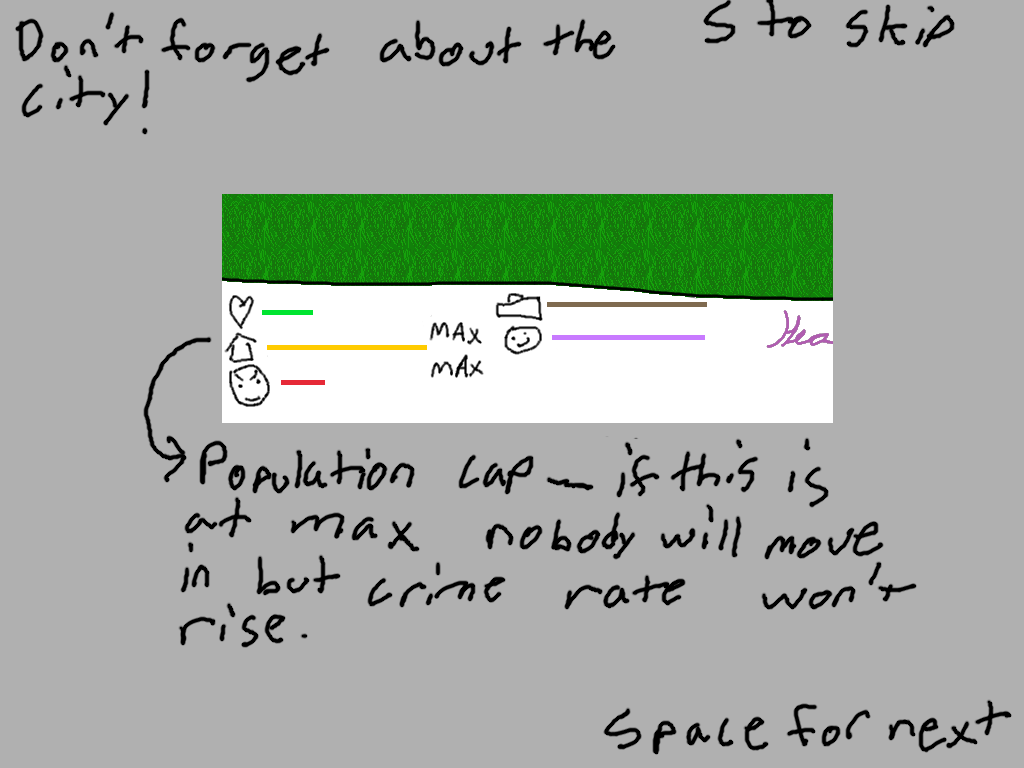 Don't forget about the
city!
S to skip
MAX
MAX
Hea
Population cap - if this is
at max nobody will move
in but crime rate won't
rise.
Space for next